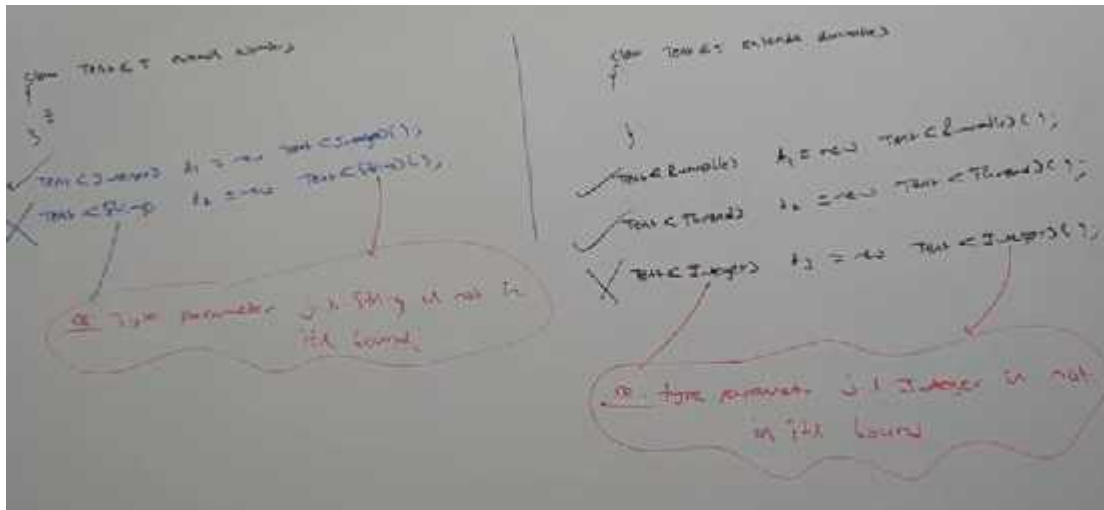 class Test<T extends Number>
{
}
Test<Integer> t1 = new Test<Integer>();
Test<String> t2 = new Test<String>();
CE: Type parameter j.l String is not in
its bound;
class Test<T extends Runnable>
{
}
Test<Runnable> t1 = new Test<Runnable>();
Test<Thread> t2 = new Test<Thread>();
Test<Integer> t3 = new Test<Integer>();
CE: type parameter j.l Integer is not
in its bound